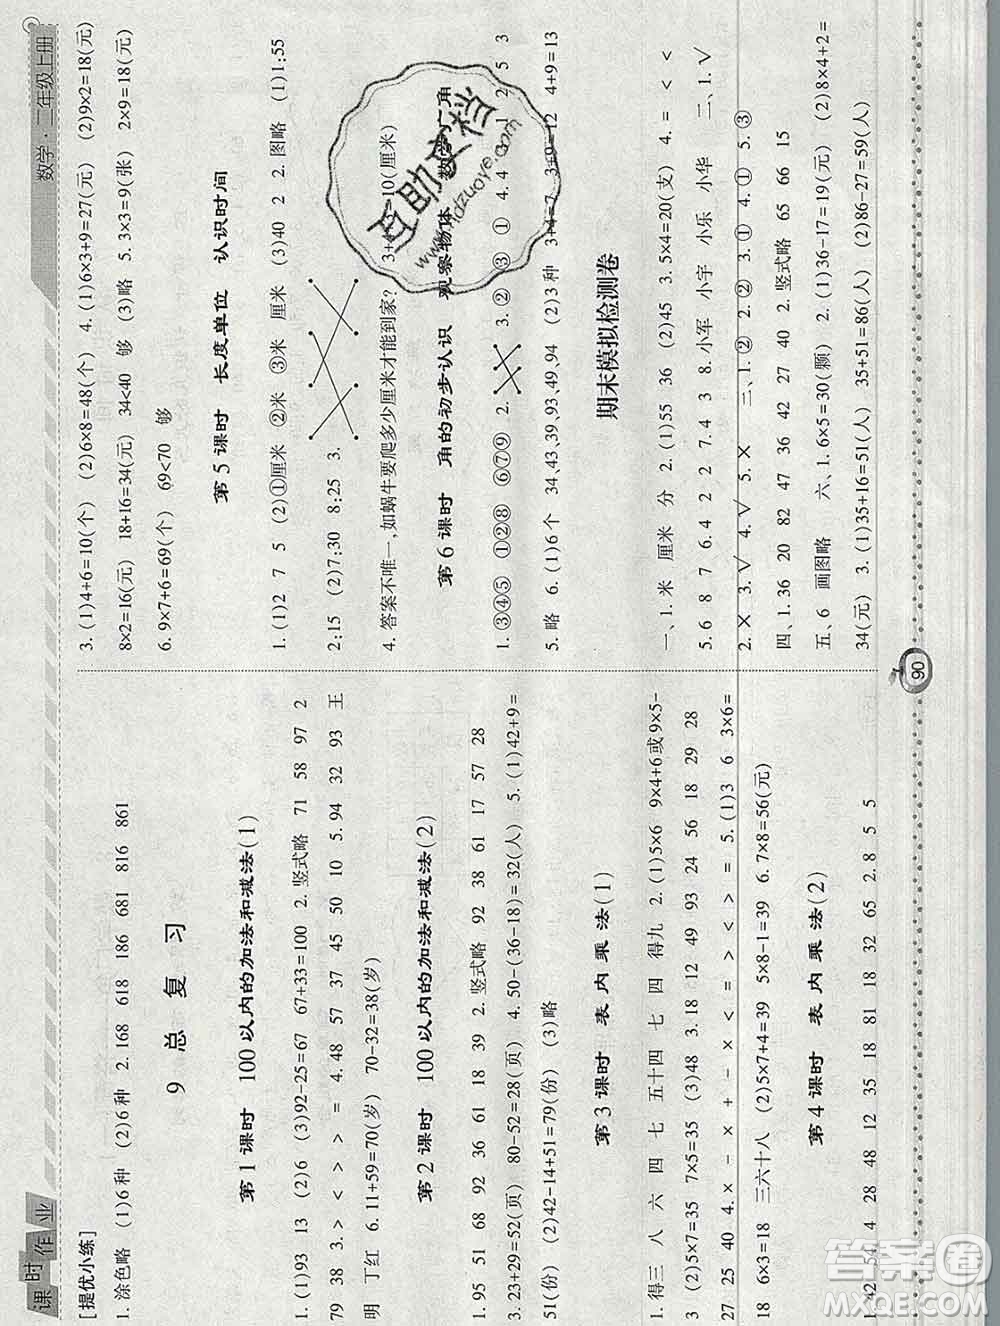 课时作业
数学·二年级上册
[提优小练]
1. 涂色略 (1)6种 (2)6种 2. 168 618 186 681 816 861
9 总 复 习
第1课时 100以内的加法和减法(1)
1. (1)93 13 (2)6 (3)92-25=67 67+33=100 2. 竖式略 71 58 97 2
79 38 3. > < > > = 4. 48 57 37 45 50 10 5. 94 32 93 王
明 丁红 6. 11+59=70(岁) 70-32=38(岁)
第2课时 100以内的加法和减法(2)
1. 95 51 68 92 36 61 18 39 2. 竖式略 92 38 61 17 57 28
3. 23+29=52(页) 80-52=28(页) 4. 50-(36-18)=32(人) 5. (1)42+9=
51(份) (2)42-14+51=79(份) (3)略
第3课时 表内乘法(1)
1. 得三 八 六 四 七 五十四 七 四 得九 2. (1)5×6 9×4+6或9×5-
3 (2)5×7=35 7×5=35 (3)48 3. 18 12 49 93 24 56 18 29 28
27 25 40 4. × - × + - × < = > < > = 5. (1)3 6 3×6=
18 6×3=18 三六十八 (2)5×7+4=39 5×8-1=39 6. 7×8=56(元)
第4课时 表内乘法(2)
1. 42 54 4 28 48 12 35 18 81 18 32 65 2. 8 5 5
3. (1)4+6=10(个) (2)6×8=48(个) 4. (1)6×3+9=27(元) (2)9×2=18(元)
8×2=16(元) 18+16=34(元) 34<40 够 (3)略 5. 3×3=9(张) 2×9=18(元)
6. 9×7+6=69(个) 69<70 够
第5课时 长度单位 认识时间
1. (1)2 7 5 (2)①厘米 ②米 ③米 厘米 (3)40 2 2. 图略 (1)1:55
2:15 (2)7:30 8:25 3.
4. 答案不唯一,如蜗牛要爬多少厘米才能到家? 10(厘米)
第6课时 角的初步认识 观察物体 数学广角
1. ③④⑤ ①②⑧ ⑥⑦⑨ 2. 3. ② ③ ① 4. 4 1 2 5 3
5. 略 6. (1)6个 34、43、39、93、49、94 (2)3种 3+4=7 3+9=12 4+9=13
期末模拟检测卷
一、1. 米 厘米 分 2. (1)55 36 (2)45 3. 5×4=20(支) 4. = < <
5. 6 8 7 6. 4 2 2 7. 4 3 8. 小军 小宇 小乐 小华 二、1. √
2. × 3. √ 4. √ 5. × 三、1. ② 2. ② 3. ① 4. ① 5. ③
四、1. 36 20 82 47 36 42 27 40 2. 竖式略 65 66 15
五、6 画图略 六、1. 6×5=30(颗) 2. (1)36-17=19(元) (2)8×4+2=
34(元) 3. (1)35+16=51(人) 35+51=86(人) (2)86-27=59(人)
90
互助文档
答案圈
MXQE.COM